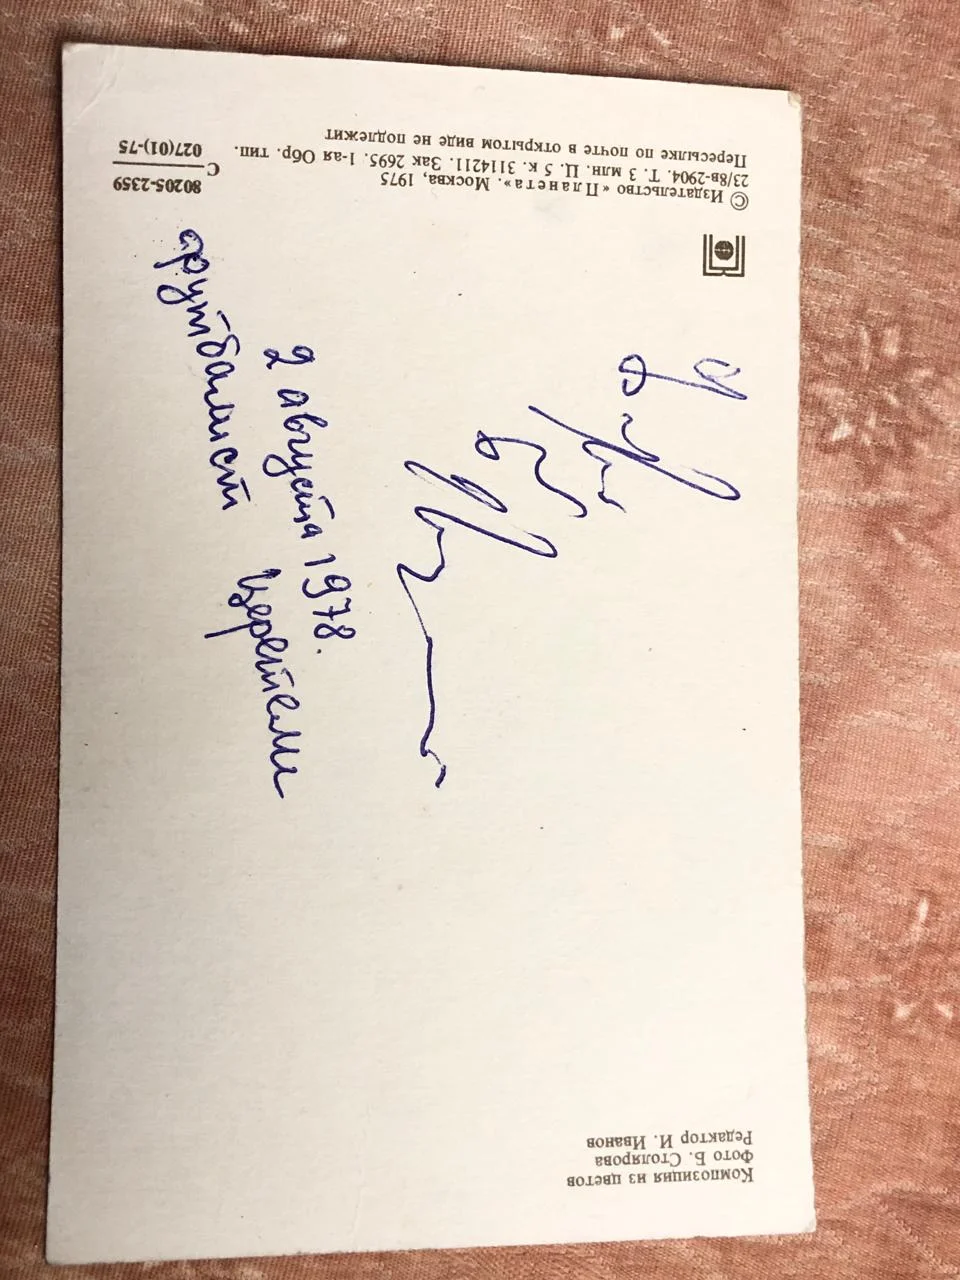 Композиция из цветов
Фото Б. Столярова
Редактор И. Иванов
© Издательство «Планета». Москва, 1975
23/8в-2904. Т. 3 млн. Ц. 5 к. 3114211. Зак 2695. 1-ая Обр. тип.
Пересылке по почте в открытом виде не подлежит
80205-2359
С
027(01)-75
2 августа 1978.
футболист Церетели